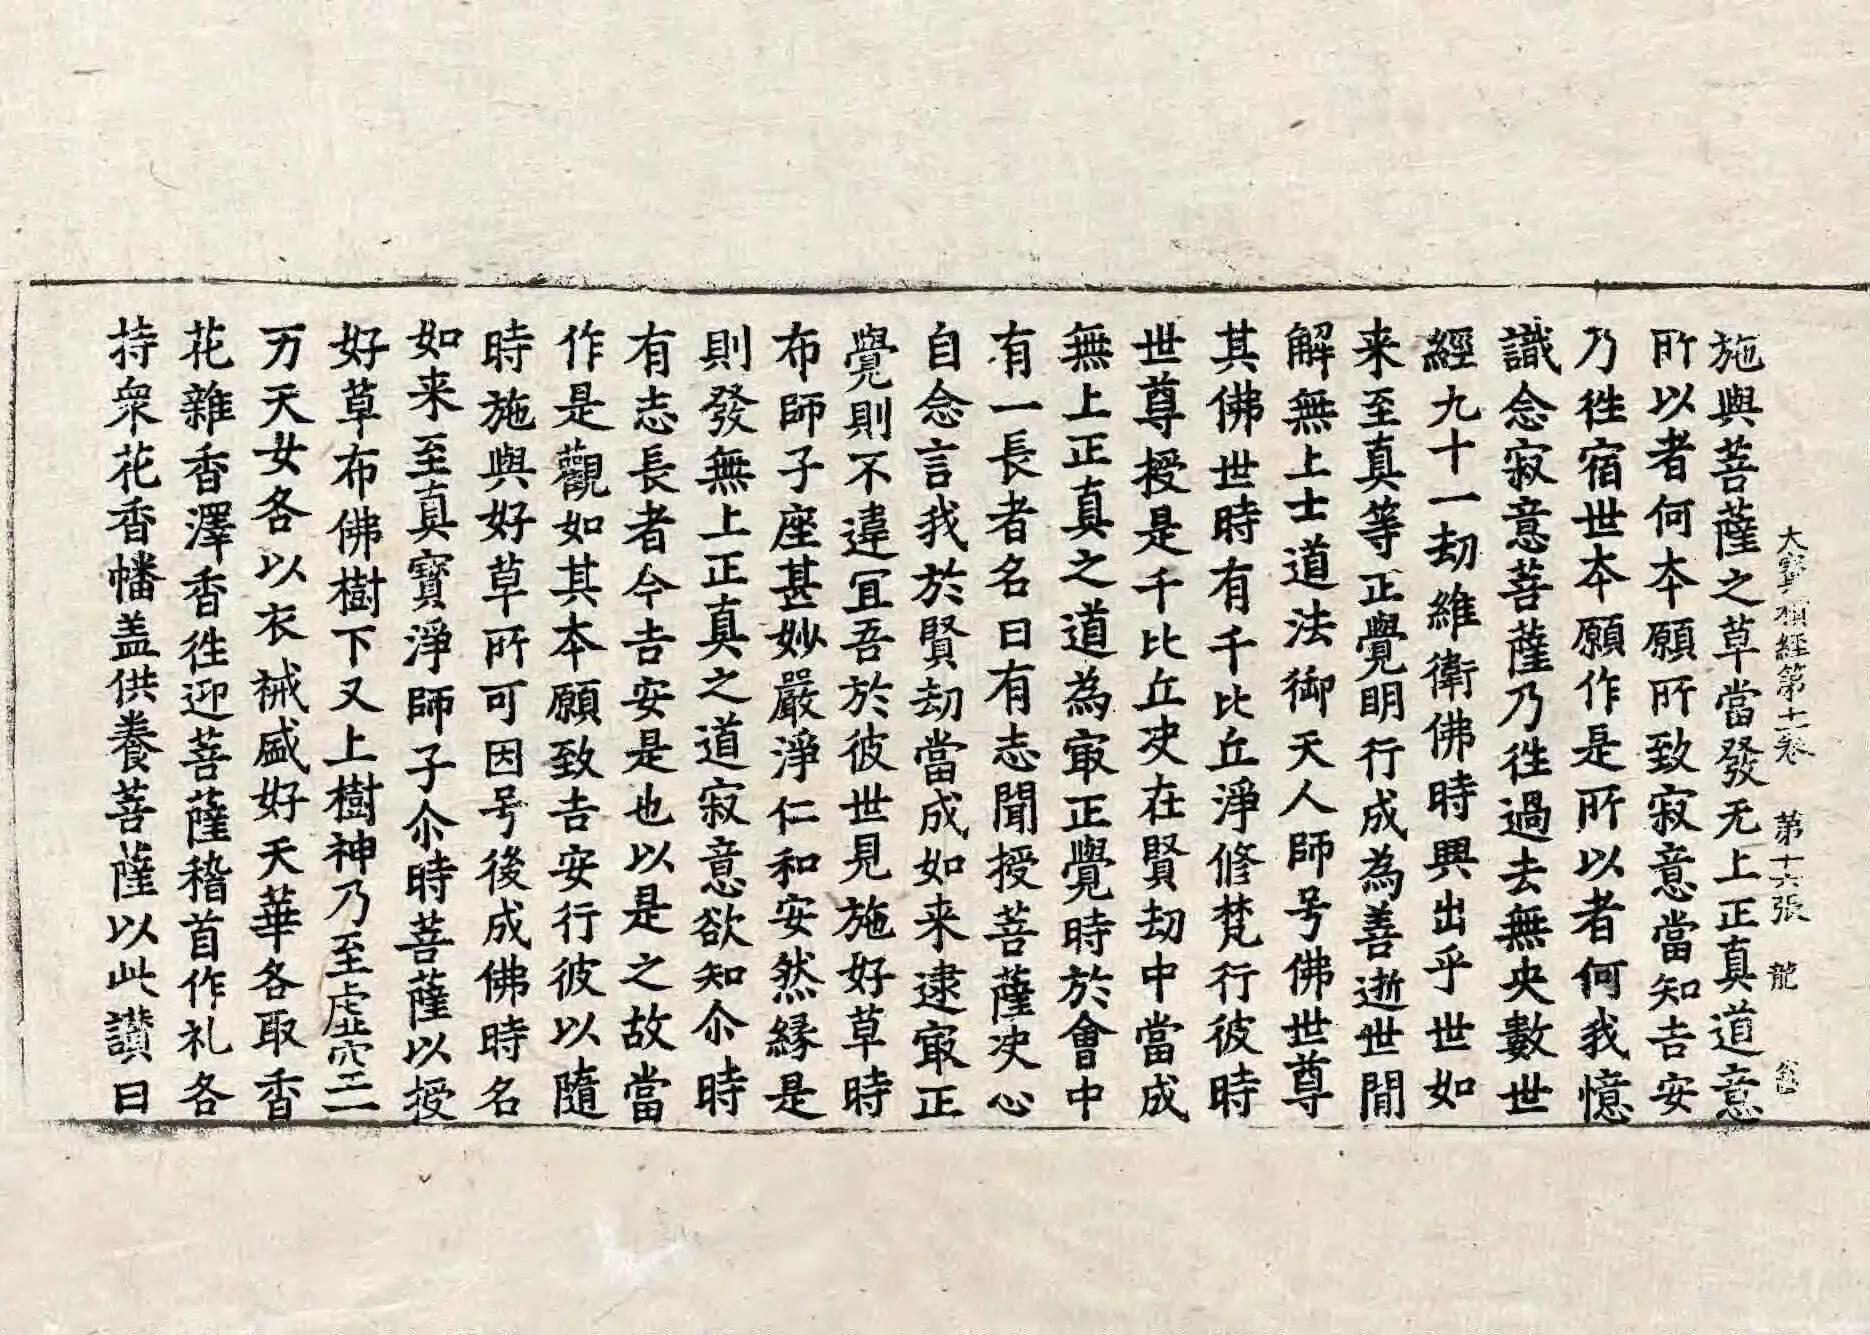 大寶積經第十一卷 第十六張 龍
施與菩薩之草當發无上正真道意
所以者何本願所致寂意當知吉安
乃往宿世本願作是所以者何我憶
識念寂意菩薩乃往過去無央數世
經九十一劫維衛佛時興出乎世如
来至真等正覺明行成為善逝世閒
解無上士道法御天人師号佛世尊
其佛世時有千比丘淨修梵行彼時
世尊授是千比丘决在賢劫中當成
無上正真之道為㝡正覺時於會中
有一長者名曰有志聞授菩薩决心
自念言我於賢劫當成如来逮㝡正
覺則不違冝吾於彼世見施好草時
布師子座甚妙嚴淨仁和安然縁是
則發無上正真之道寂意欲知尒時
有志長者今吉安是也以是之故當
作是觀如其本願致吉安行彼以隨
時施與好草所可因号後成佛時名
如来至真寶淨師子尒時菩薩以授
好草布佛樹下又上樹神乃至虚空二
万天女各以衣裓盛好天華各取香
花雜香澤香往迎菩薩稽首作礼各
持衆花香幡盖供養菩薩以此讃曰